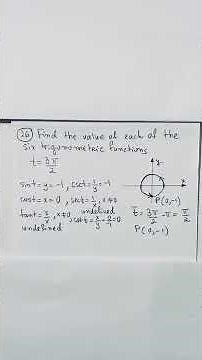 26 Find the value of each of the
six trigonometric functions
t = 3π/2
y
x
P(0,-1)
sint = y = -1, csct = 1/y = -1
cost = x = 0, sect = 1/x, x≠0
undefined
tant = y/x, x≠0, cott = x/y = 0/-1 = 0
undefined
t̄ = 3π/2 - π = π/2
P(0,-1)